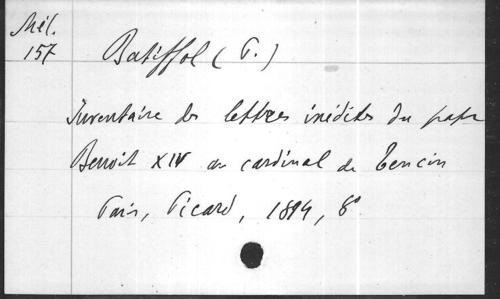 Mél.
157
Batiffol (P.)
Inventaire des lettres inédites du pape
Benoit XIV au cardinal de Tencin
Paris, Picard, 1894, 8°